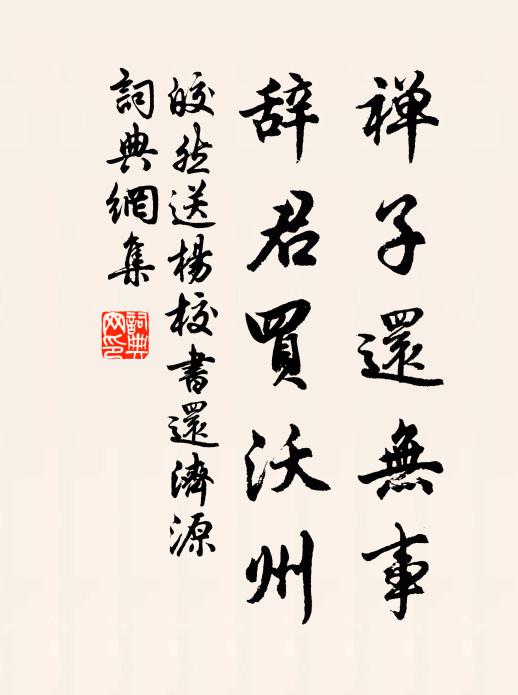 禅子還無事
辞君買沃州
皎然送楊校書還濟源
詞典網集
詞典网印